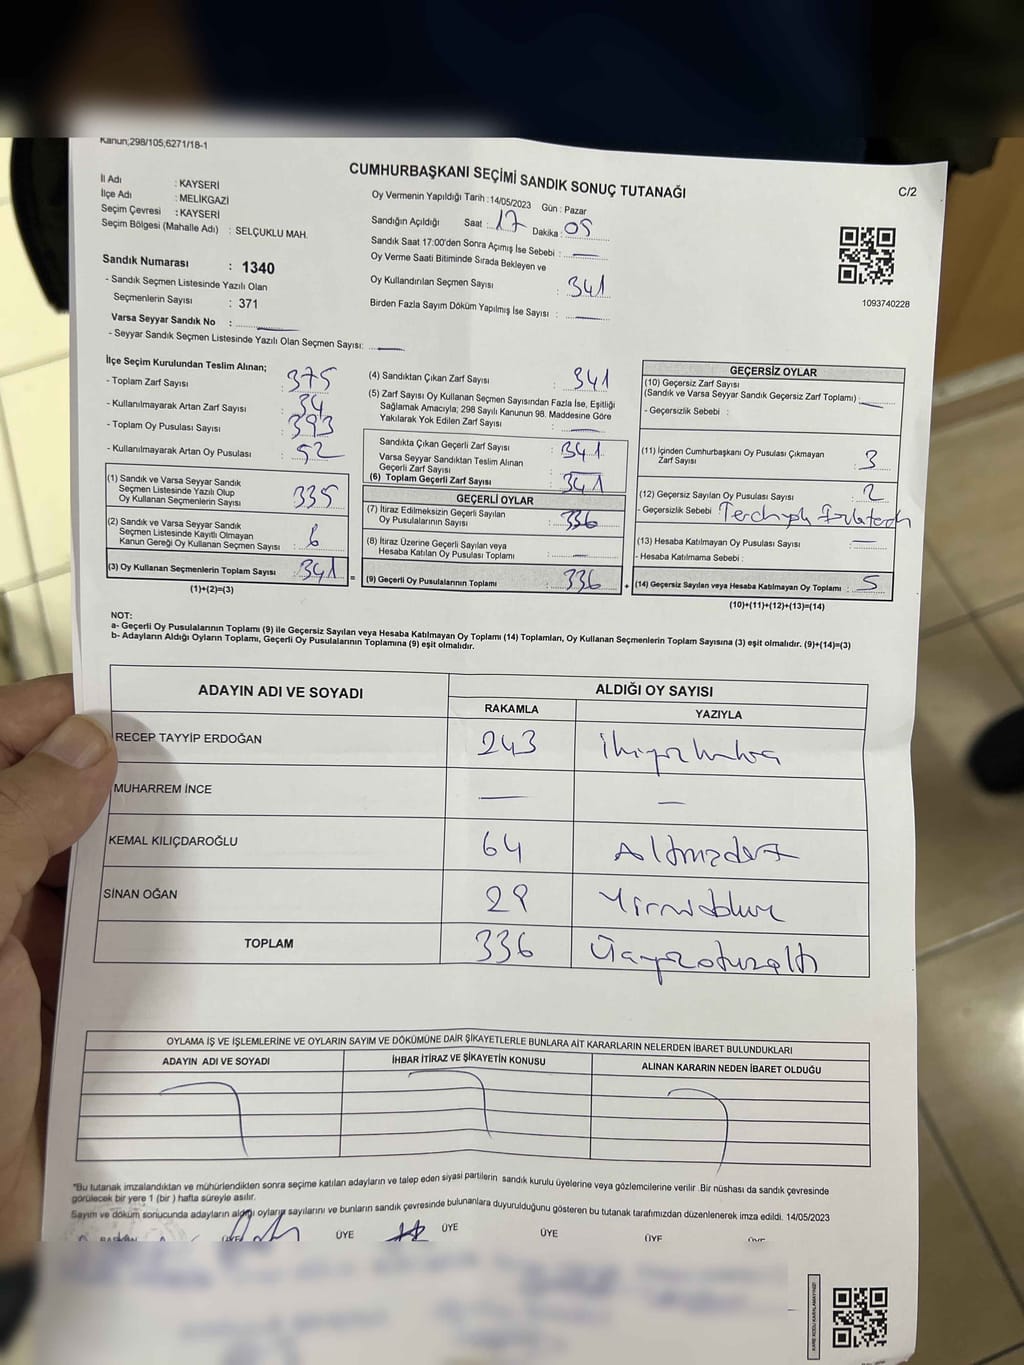 Kanun;298/105;6271/18-1
CUMHURBAŞKANI SEÇİMİ SANDIK SONUÇ TUTANAĞI
C/2
İl Adı : KAYSERİ
İlçe Adı : MELİKGAZİ
Seçim Çevresi : KAYSERİ
Seçim Bölgesi (Mahalle Adı) : SELÇUKLU MAH.
Sandık Numarası : 1340
- Sandık Seçmen Listesinde Yazılı Olan
Seçmenlerin Sayısı : 371
Varsa Seyyar Sandık No :
- Seyyar Sandık Seçmen Listesinde Yazılı Olan Seçmen Sayısı:
Oy Vermenin Yapıldığı Tarih : 14/05/2023 Gün : Pazar
Sandığın Açıldığı Saat : 17 Dakika : 05
Sandık Saat 17:00'den Sonra Açımış İse Sebebi : —
Oy Verme Saati Bitiminde Sırada Bekleyen ve
Oy Kullandırılan Seçmen Sayısı : 341
Birden Fazla Sayım Döküm Yapılmış İse Sayısı : —
1093740228
İlçe Seçim Kurulundan Teslim Alınan;
- Toplam Zarf Sayısı : 375
- Kullanılmayarak Artan Zarf Sayısı : 34
- Toplam Oy Pusulası Sayısı : 393
- Kullanılmayarak Artan Oy Pusulası : 52
(1) Sandık ve Varsa Seyyar Sandık
Seçmen Listesinde Yazılı Olup
Oy Kullanan Seçmenlerin Sayısı : 335
(2) Sandık ve Varsa Seyyar Sandık
Seçmen Listesinde Kayıtlı Olmayan
Kanun Gereği Oy Kullanan Seçmen Sayısı : 6
(3) Oy Kullanan Seçmenlerin Toplam Sayısı : 341
(1)+(2)=(3)
=
(4) Sandıktan Çıkan Zarf Sayısı : 341
(5) Zarf Sayısı Oy Kullanan Seçmen Sayısından Fazla İse, Eşitliği
Sağlamak Amacıyla; 298 Sayılı Kanunun 98. Maddesine Göre
Yakılarak Yok Edilen Zarf Sayısı : —
Sandıkta Çıkan Geçerli Zarf Sayısı : 341
Varsa Seyyar Sandıktan Teslim Alınan
Geçerli Zarf Sayısı : —
(6) Toplam Geçerli Zarf Sayısı : 341
GEÇERLİ OYLAR
(7) İtiraz Edilmeksizin Geçerli Sayılan
Oy Pusulalarının Sayısı : 336
(8) İtiraz Üzerine Geçerli Sayılan veya
Hesaba Katılan Oy Pusulası Toplamı : —
(9) Geçerli Oy Pusulalarının Toplamı : 336
+
GEÇERSİZ OYLAR
(10) Geçersiz Zarf Sayısı
(Sandık ve Varsa Seyyar Sandık Geçersiz Zarf Toplamı) : —
- Geçersizlik Sebebi :
(11) İçinden Cumhurbaşkanı Oy Pusulası Çıkmayan
Zarf Sayısı : 3
(12) Geçersiz Sayılan Oy Pusulası Sayısı : 2
- Geçersizlik Sebebi :
(13) Hesaba Katılmayan Oy Pusulası Sayısı : —
- Hesaba Katılmama Sebebi :
(14) Geçersiz Sayılan veya Hesaba Katılmayan Oy Toplamı : 5
(10)+(11)+(12)+(13)=(14)
NOT:
a- Geçerli Oy Pusulalarının Toplamı (9) ile Geçersiz Sayılan veya Hesaba Katılmayan Oy Toplamı (14) Toplamları, Oy Kullanan Seçmenlerin Toplam Sayısına (3) eşit olmalıdır. (9)+(14)=(3)
b- Adayların Aldığı Oyların Toplamı, Geçerli Oy Pusulalarının Toplamına (9) eşit olmalıdır.
ADAYIN ADI VE SOYADI ALDIĞI OY SAYISI
RAKAMLA YAZIYLA
RECEP TAYYİP ERDOĞAN 243
MUHARREM İNCE — —
KEMAL KILIÇDAROĞLU 64 Altmışdört
SİNAN OĞAN 29 Yirmidokuz
TOPLAM 336 Üçyüzotuzaltı
OYLAMA İŞ VE İŞLEMLERİNE VE OYLARIN SAYIM VE DÖKÜMÜNE DAİR ŞİKAYETLERLE BUNLARA AİT KARARLARIN NELERDEN İBARET BULUNDUKLARI
ADAYIN ADI VE SOYADI İHBAR İTİRAZ VE ŞİKAYETİN KONUSU ALINAN KARARIN NEDEN İBARET OLDUĞU
*Bu tutanak imzalandıktan ve mühürlendikten sonra seçime katılan adayların ve talep eden siyasi partilerin sandık kurulu üyelerine veya gözlemcilerine verilir .Bir nüshası da sandık çevresinde
görülecek bir yere 1 (bir ) hafta süreyle asılır.
Sayım ve döküm sonucunda adayların aldığı oyların sayılarını ve bunların sandık çevresinde bulunanlara duyurulduğunu gösteren bu tutanak tarafımızdan düzenlenerek imza edildi. 14/05/2023
BAŞKAN ÜYE ÜYE ÜYE ÜYE ÜYE ÜYE
KARE KODU KARALAMAYINIZ!